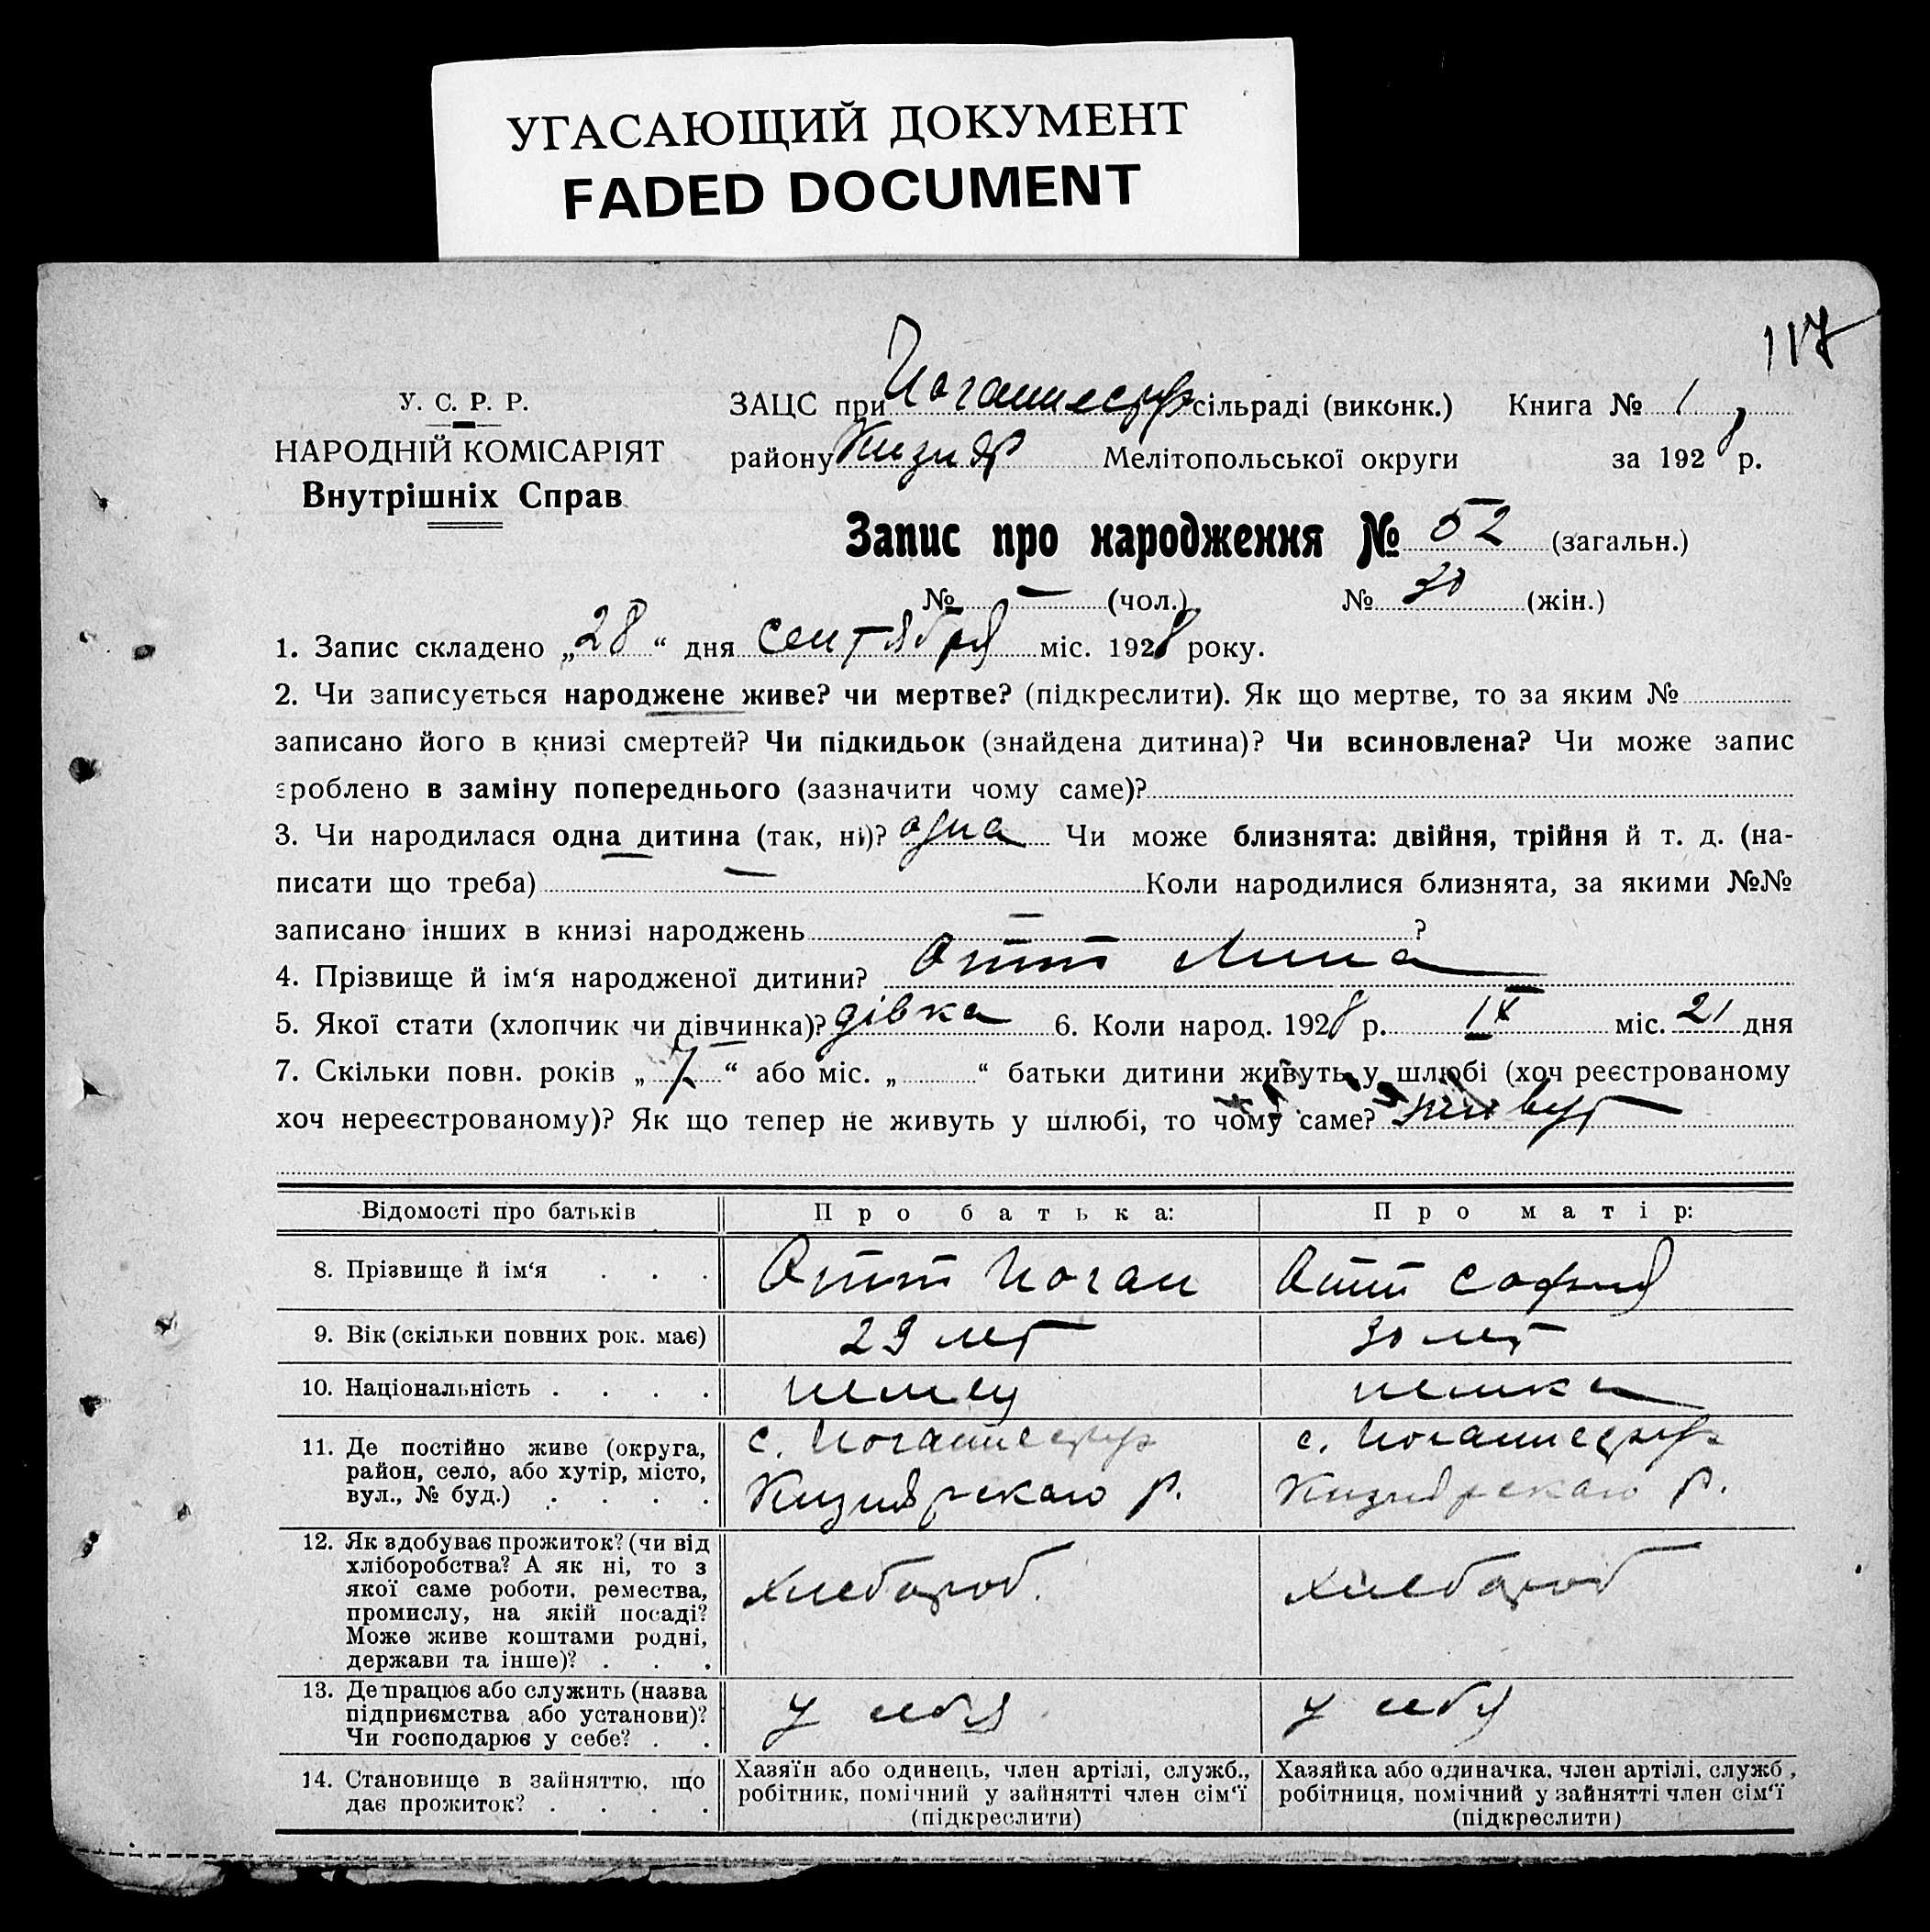 УГАСАЮЩИЙ ДОКУМЕНТ
FADED DOCUMENT
117
У. С. Р. Р.
НАРОДНІЙ КОМІСАРІЯТ
Внутрішніх Справ
ЗАЦС при Иоганнесдорф сільраді (виконк.) Книга № 1
району Кизияр Мелітопольської округи за 1928 р.
Запис про народження № 52 (загальн.)
№ — (чол.) № 30 (жін.)
1. Запис складено „28“ дня сентября міс. 1928 року.
2. Чи записується народжене живе? чи мертве? (підкреслити). Як що мертве, то за яким №
записано його в книзі смертей? Чи підкидьок (знайдена дитина)? Чи всиновлена? Чи може запис
зроблено в заміну попереднього (зазначити чому саме)?
3. Чи народилася одна дитина (так, ні)? одна Чи може близнята: двійня, трійня й т. д. (на-
писати що треба) — Коли народилися близнята, за якими №№
записано інших в книзі народжень — ?
4. Прізвище й ім‘я народженої дитини? Отт Лина
5. Якої стати (хлопчик чи дівчинка)? дівка 6. Коли народ. 1928 р. IX міс. 21 дня
7. Скільки повн. років „7“ або міс. „ “ батьки дитини живуть у шлюбі (хоч реєстрованому
хоч нереєстрованому)? Як що тепер не живуть у шлюбі, то чому саме? живут
Відомості про батьків Про батька: Про матір:
8. Прізвище й ім‘я . . . Отт Иоган Отт София
9. Вік (скільки повних рок. має) 29 лет 30 лет
10. Національність . . . . немец немка
11. Де постійно живе (округа,
район, село, або хутір, місто,
вул., № буд.) . . . .
с. Иоганнесдорф
Кизиярскаго р.
с. Иоганнесдорф
Кизиярскаго р.
12. Як здобуває прожиток? (чи від
хліборобства? А як ні, то з
якої саме роботи, ремества,
промислу, на якій посаді?
Може живе коштами родні,
держави та інше)? . . .
хлебороб. хлебороб
13. Де працює або служить (назва
підприємства або установи)?
Чи господарює у себе? . .
у себя у себя
14. Становище в зайняттю, що
дає прожиток? . . . .
Хазяїн або одинець, член артілі, служб.,
робітник, помічний у зайнятті член сім‘ї
(підкреслити)
Хазяйка або одиначка, член артілі, служб.,
робітниця, помічний у зайнятті член сім‘ї
(підкреслити)